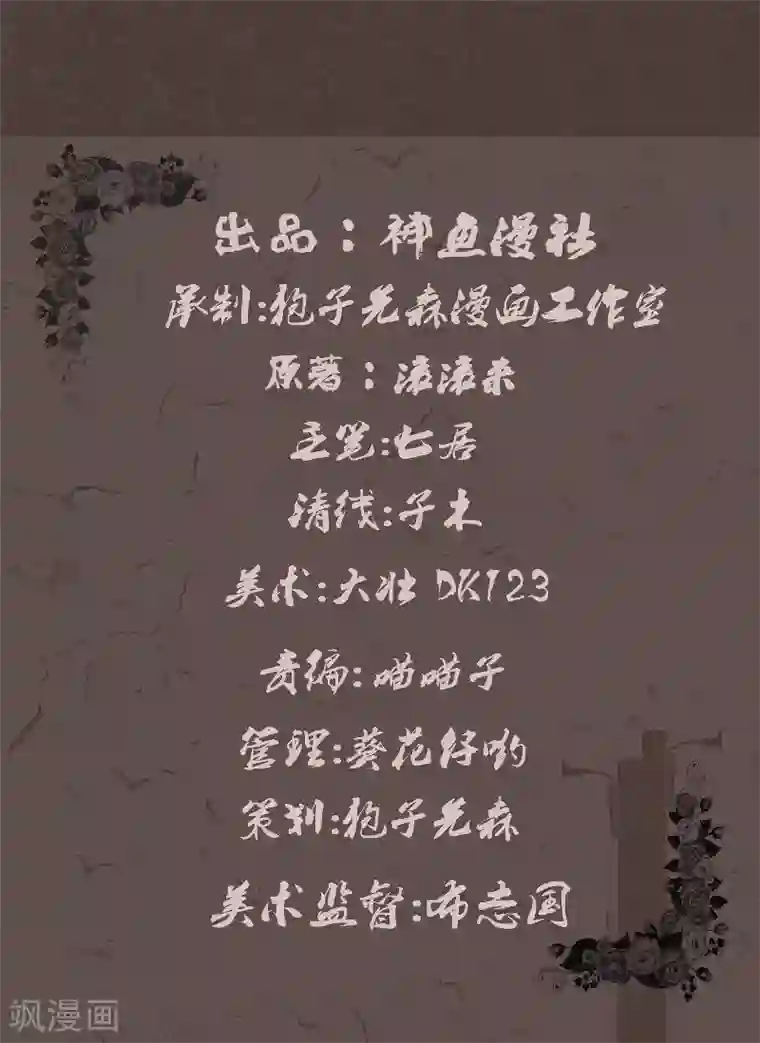 出品：神鱼漫社
承制:抱子先森漫画工作室
原著：滚滚来
主笔:七居
清线:子木
美术:大壮 DK123
责编:喵喵子
管理:葵花仔哟
策划:抱子先森
美术监督:布志国
飒漫画